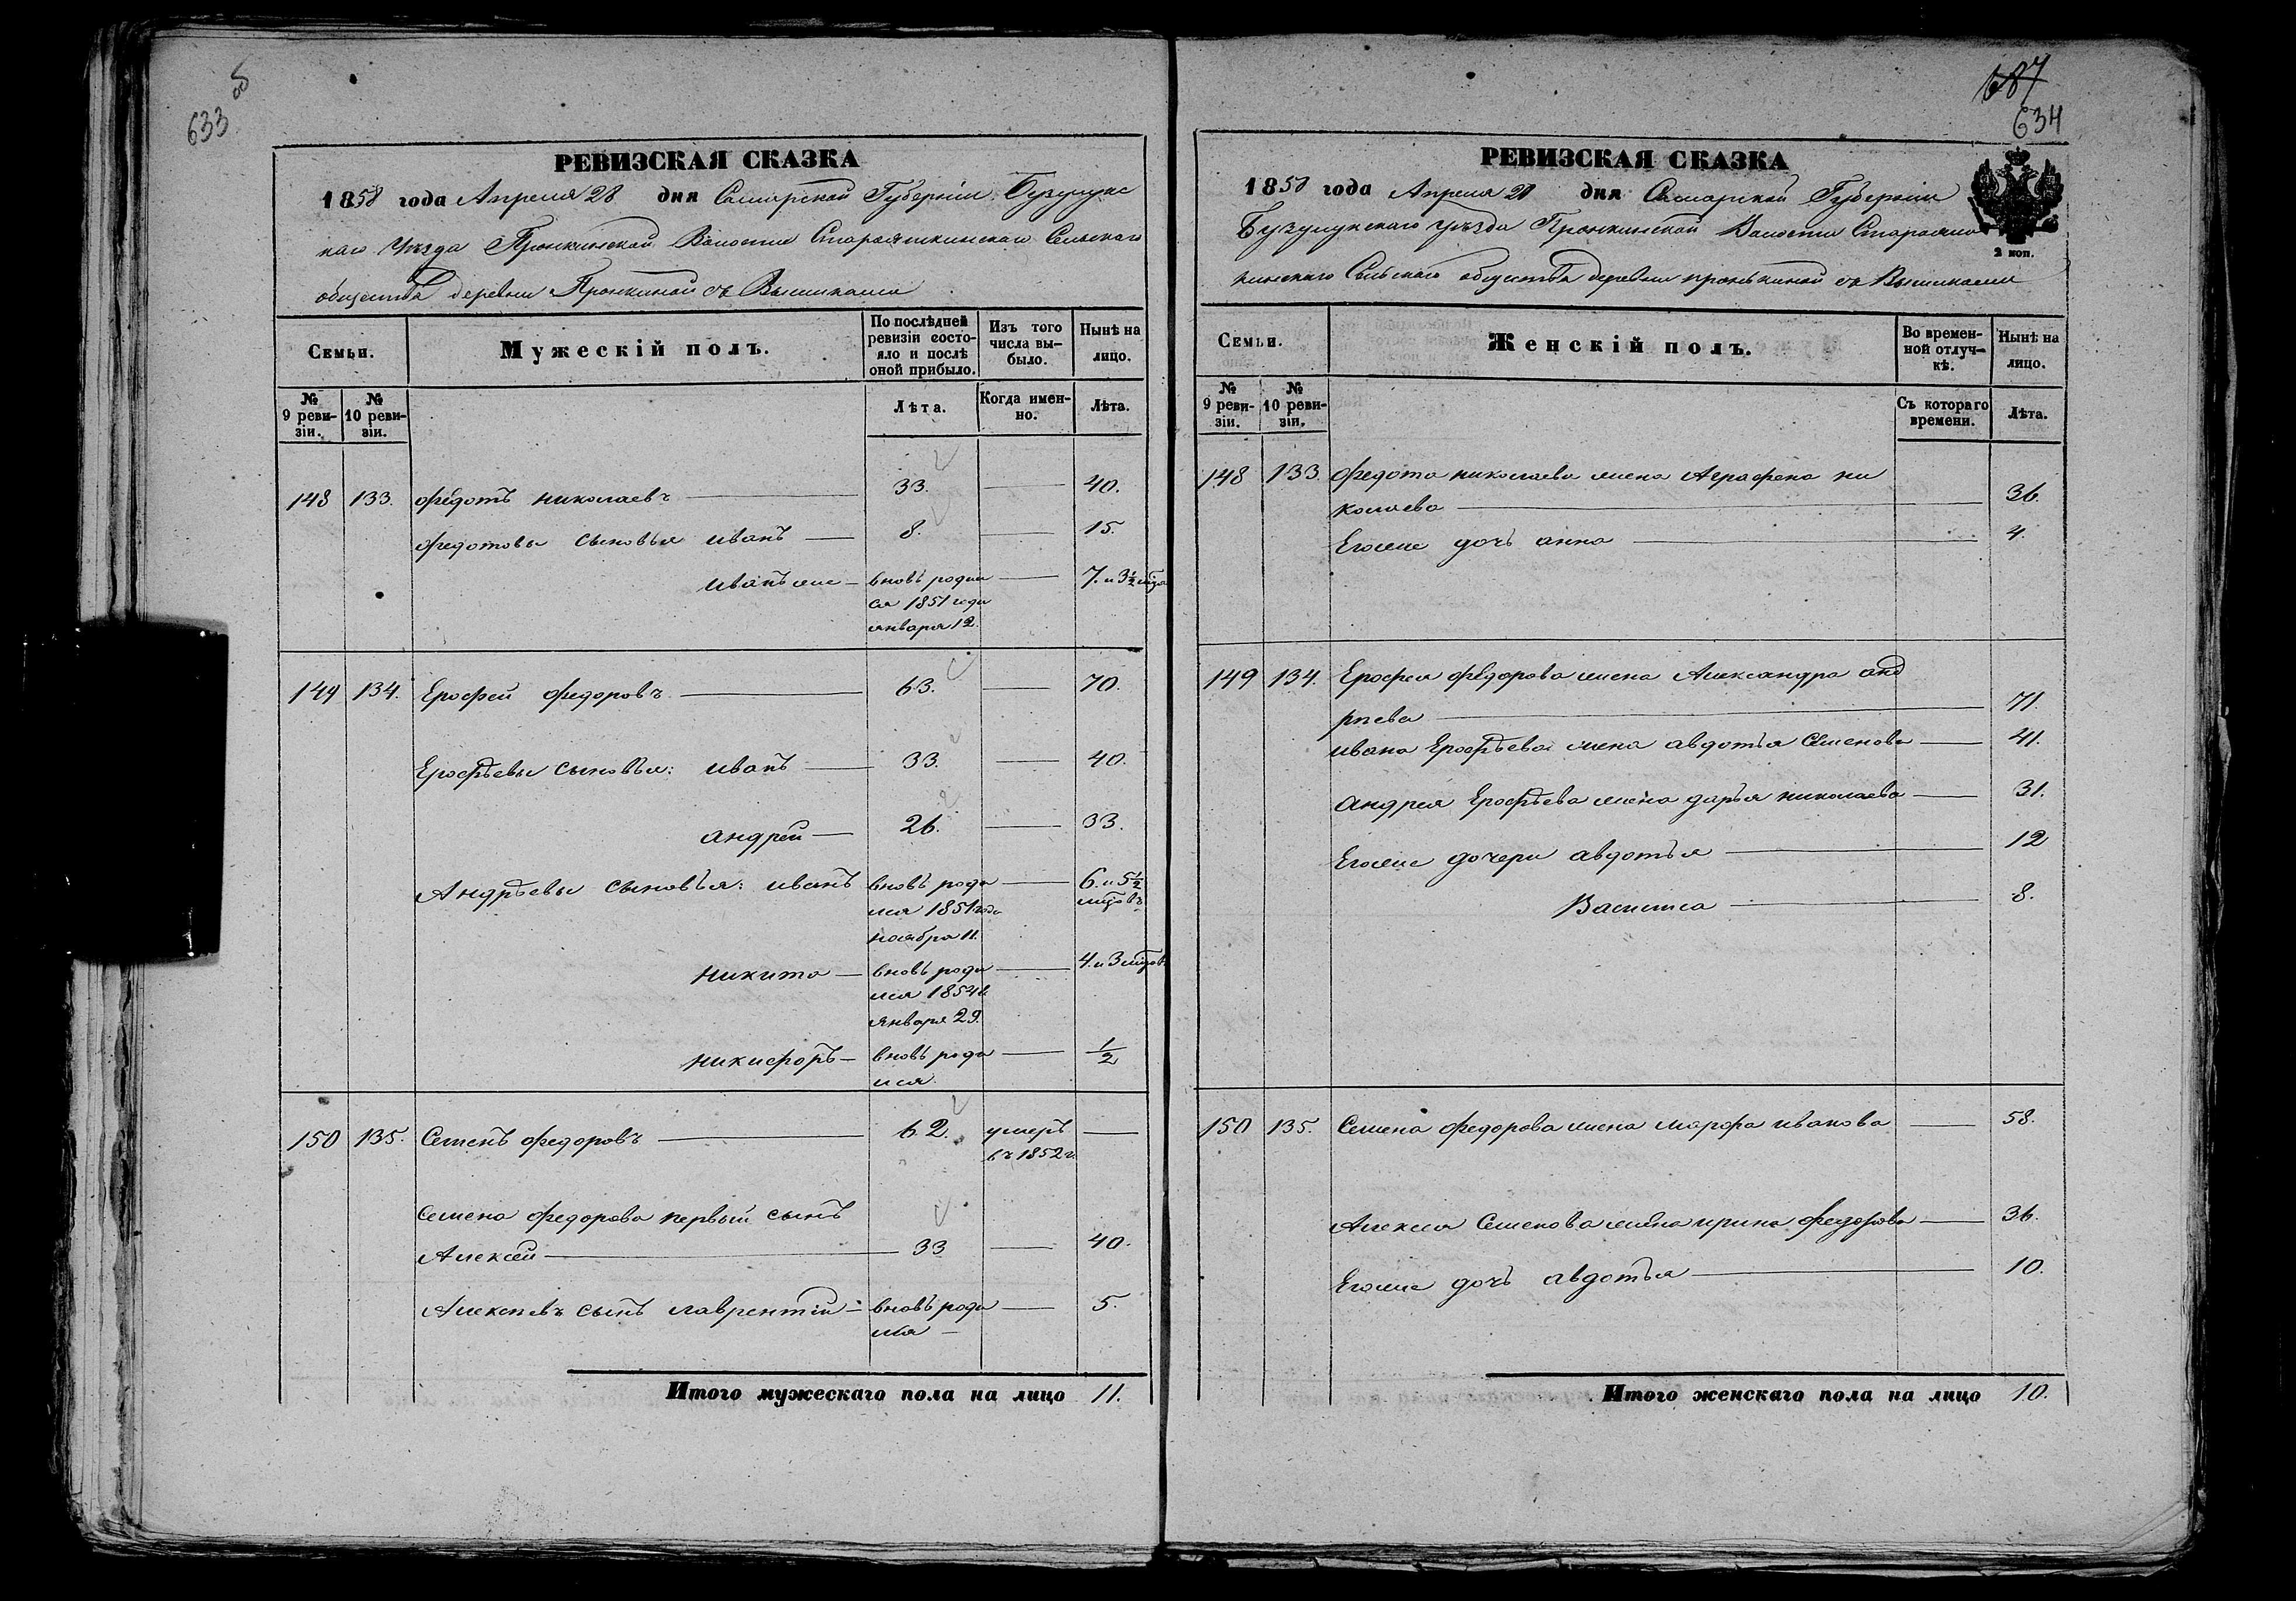 633 об
РЕВИЗСКАЯ СКАЗКА
1858 года Апреля 28 дня Самарской Губерніи Бузулукс
каго Уѣзда Пронкинской Волости Староашкинскаго Сельскаго
общества деревни Пронкиной
Семьи.
Мужескій полъ.
По послѣдней ревизіи состояло и послѣ оной прибыло.
Изъ того числа выбыло.
Нынѣ на лицо.
№ 9 ревизіи.
№ 10 ревизіи.
Лѣта.
Когда именно.
Лѣта.
148 133. Федотъ николаевъ 33. 40.
Федотовы сыновья иванъ 8. 15.
иванъ же вновь родил 7. и 3½
ся 1851 года
января 12.
149 134. Ерофей федоровъ 63. 70.
Ерофѣевы сыновья: иванъ 33. 40.
андрей 26. 33.
Андрѣевы сыновья: иванъ вновь роди 6. и 5½
лся 1851 года мѣсовъ
ноября 11.
никита вновь роди 4. и 3
лся 1854 г.
января 29.
никифоръ вновь роди ½
лся.
150 135. Семенъ федоровъ 62. умеръ
въ 1852 г.
Семена федорова первый сынъ
Алексей 33 40.
Алексѣевъ сынъ лаврентий вновь роди 5.
лся
Итого мужескаго пола на лицо 11.
687
634
РЕВИЗСКАЯ СКАЗКА
1858 года Апреля 28 дня Самарской Губернии
2 коп.
Бузулукскаго уѣзда Пронкинской Волости Староаш
кинскаго Сельскаго общества деревни пронькиной
Семьи.
Женскій полъ.
Во временной отлучкѣ.
Нынѣ на лицо.
№ 9 ревизіи.
№ 10 ревизіи.
Съ котораго времени.
Лѣта.
148 133. Федота николаева жена Аграфена ни
колаева 36.
Егоже дочь анна 4.
149 134. Ерофея федорова жена Александра анд
рѣева 71.
ивана Ерофѣева жена авдотья Семенова 41.
андрея Ерофѣева жена дарья николаева 31.
Егоже дочери авдотья 12
Василиса 8.
150 135. Семена федорова жена марфа иванова 58.
Алексея Семенова жена ирина федорова 36.
Егоже дочь авдотья 10.
Итого женскаго пола на лицо 10.